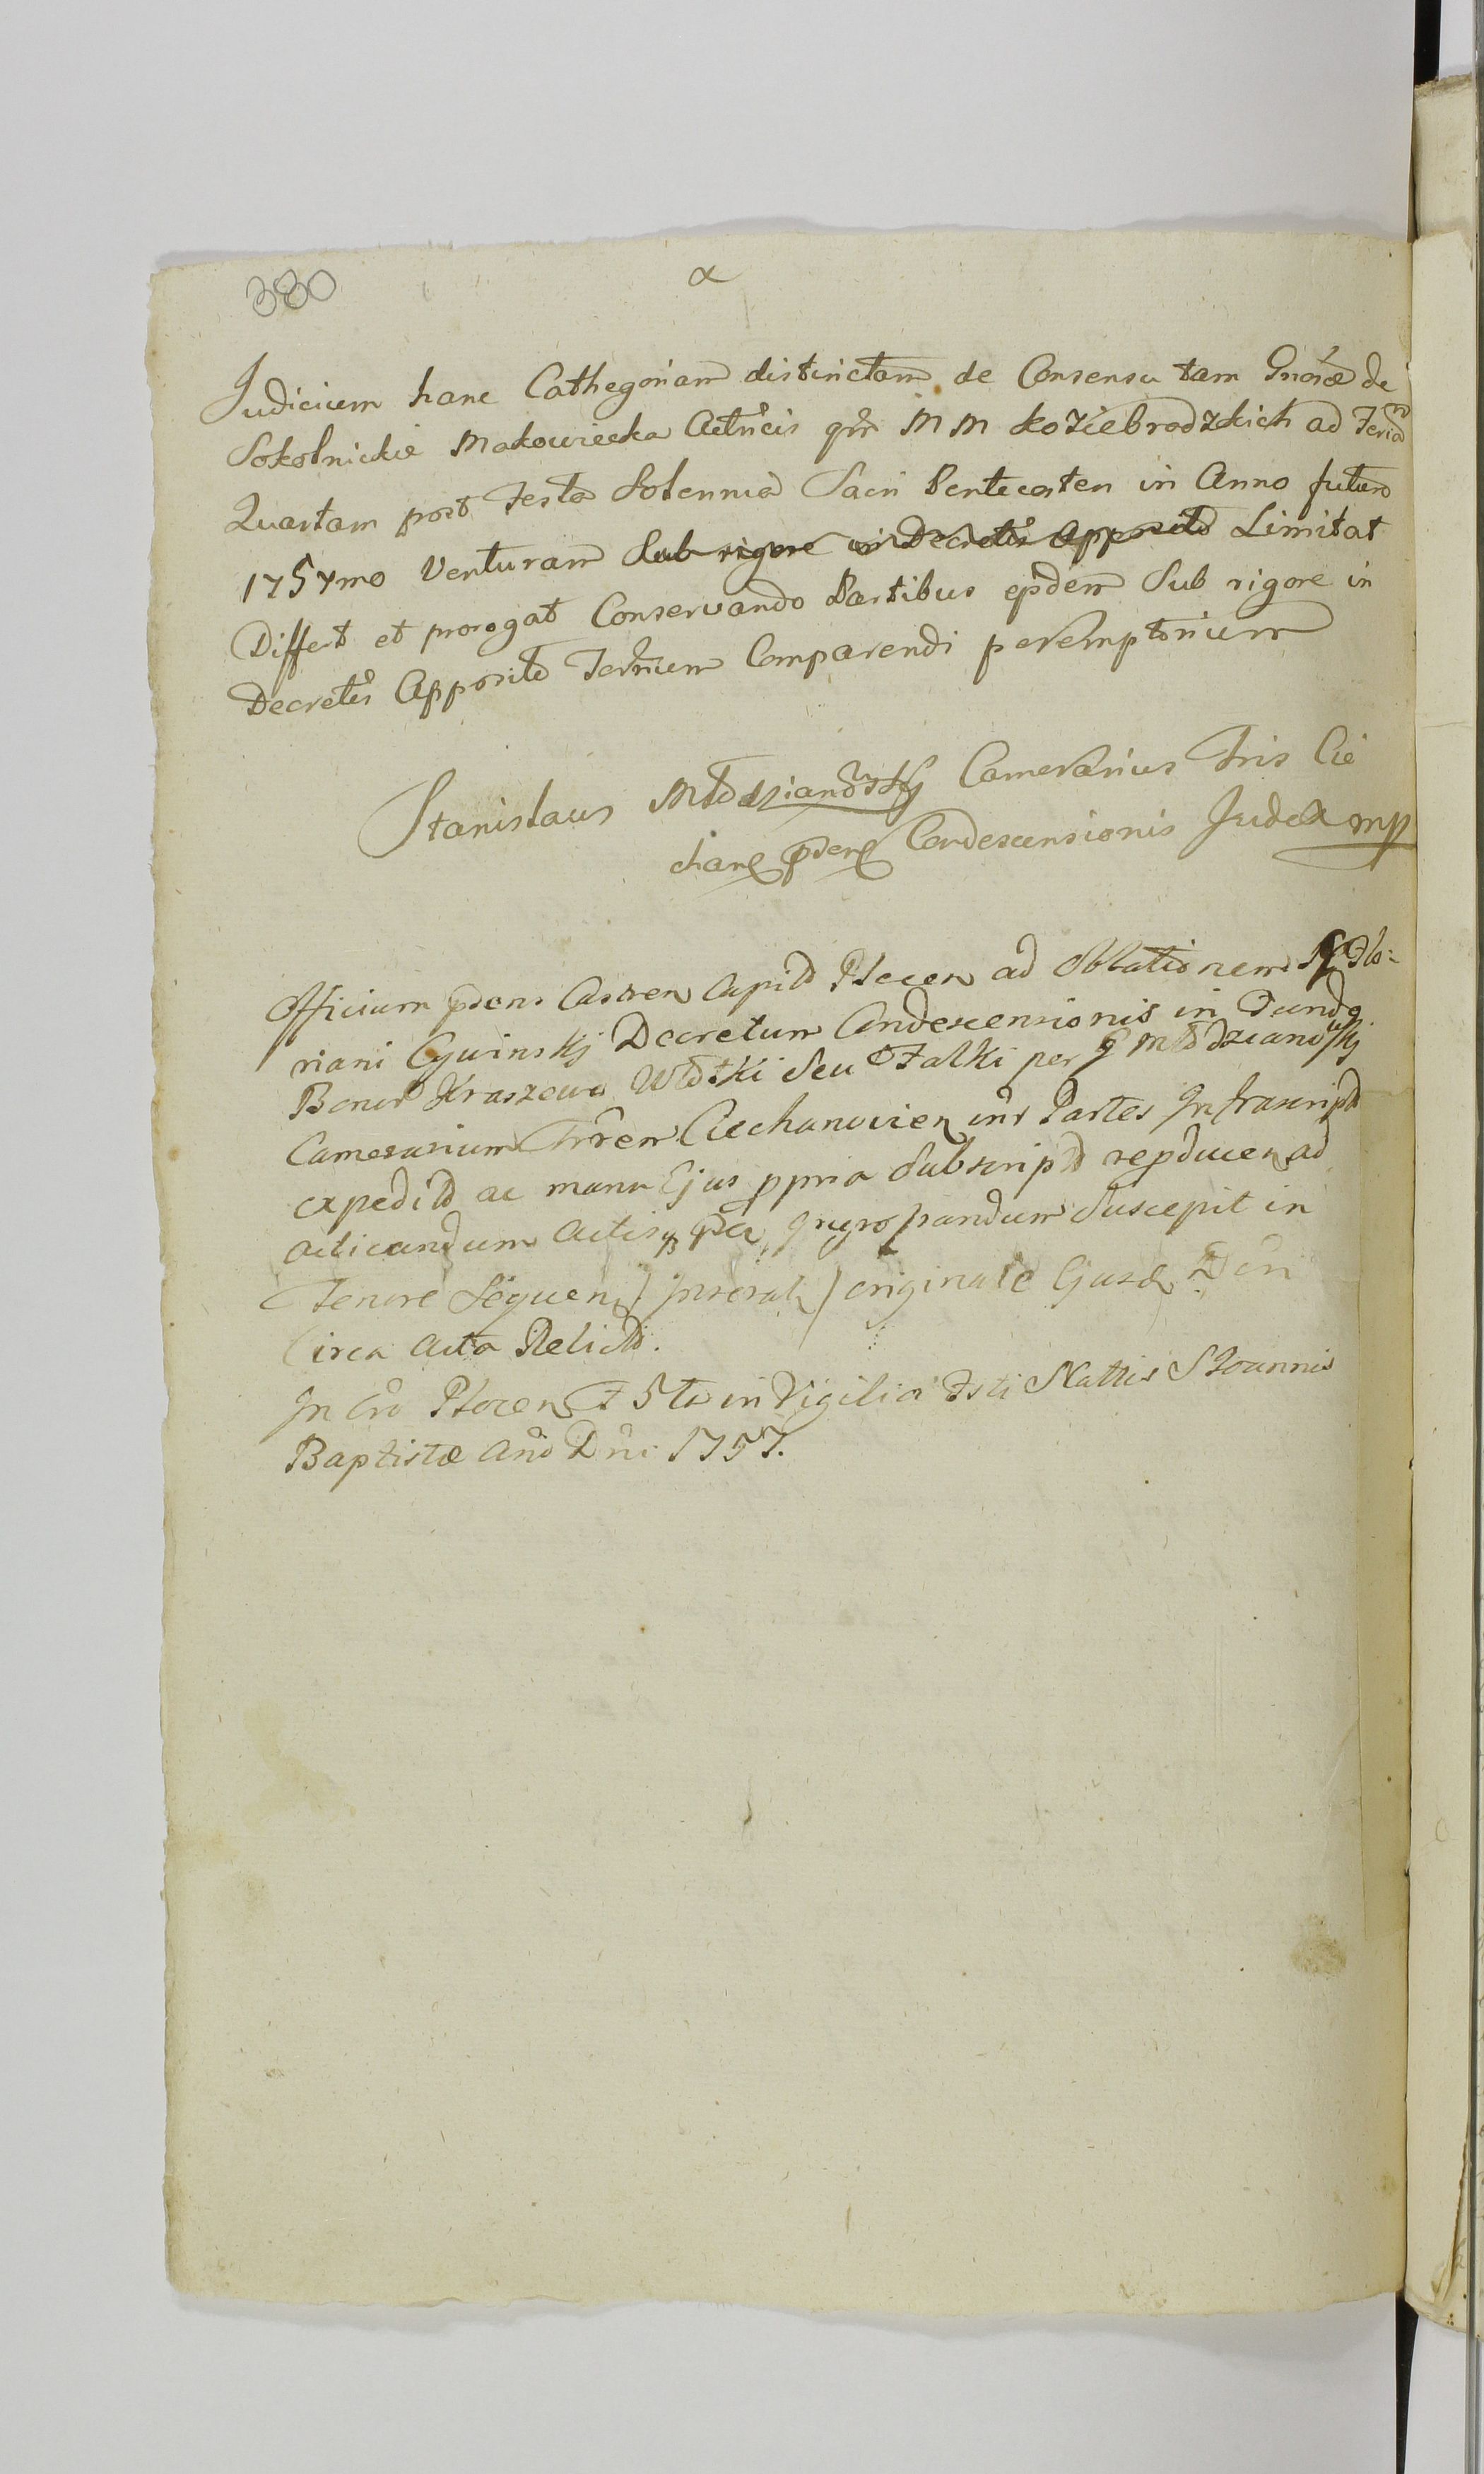 380
α
Judicium hanc Cathegoriam distinctam de Consensu tam Gnosae de
Sokolnickie Makowiecka Actricis qm MM Koziebrodzkich ad Feriã
Quartam post Festa Solennia Sacri Pentecosten in Anno futuro
175ymo Venturam Sub rigore in Decretis Apposito Limitat
Differt et prorogat Conservando Partibus ejsdem Sub rigore in
Decretis Apposito Termum Comparendi peremptorium
Stanislaus Młodzianowskj Camerarius Tris Cie
chan psen Condescensionis Judex mp
Officium psens Castren Capitl Plocen ad Oblationem G Flo=
riani Cywinskj Decretum Condescensionis in Fundo
Bonor Kraszewo Wlotki seu Falki per G Młodzianowskj
Camerarium Trrem Ciechanovien intr Partes Infrascript
expedit ac manu Ejus ppria Subscript repducen ad
acticandum actisq Ingrossandum Suscepit in
Tenore Sequen / Inserat / originale Ejusd
Circa Acta Relict.
In Cro Plocen F 5ta in Vigilia Fsti Nattis S Joannis
Baptistae Ano Dni 1757.